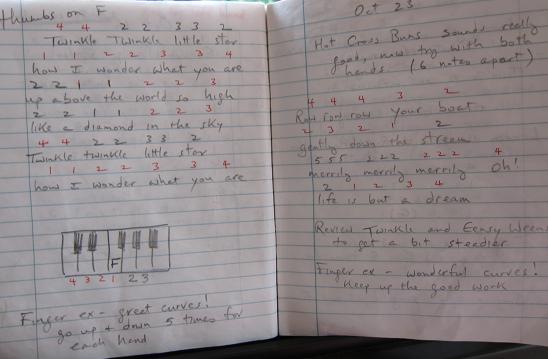 thumbs on F
4 4 2 2 3 3 2
Twinkle Twinkle little star
1 1 2 2 3 3 4
how I wonder what you are
2 2 1 1 2 2 3
up above the world so high
2 2 1 1 2 2 3
like a diamond in the sky
4 4 2 2 3 3 2
Twinkle twinkle little star
1 1 2 2 3 3 4
how I wonder what you are
F
4 3 2 1 2 3
Finger ex - great curves!
go up + down 5 times for
each hand
Oct 23
Hot Cross Buns sounds really
good, now try with both
hands (6 notes apart)
4 4 4 3 2
Row row row your boat
2 3 2 2
gently down the stream
5 5 5 2 2 2 2 2 2 4
merrily merrily merrily Oh!
2 1 2 3 4
life is but a dream
Review Twinkle and Eensy Weens
to get a bit steadier
Finger ex - wonderful curves!
Keep up the good work